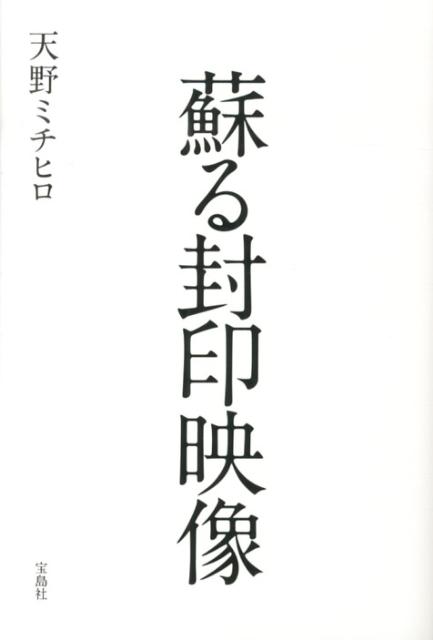 蘇る封印映像
天野ミチヒロ
宝島社